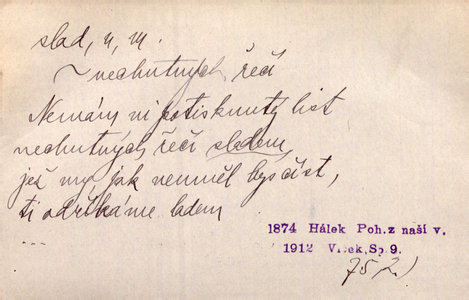 slad, u, m.
~ nechutných řečí
Nemámť ni potisknutý list
nechutných řečí sladem,
jež my, jak neuměl bys číst,
ti odříkáme ladem
...
1874 Hálek Poh. z naší v.
1912 Vlček, Sp. 9.
75